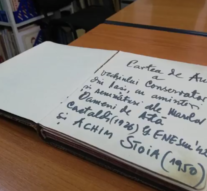 Cartea de Aur
a
vechiului Conservator
din Iași, cu amintiri
și semnături ale marilor
Oameni de Artă
Castaldi (1926) G. Enescu
și ACHIM STOIA (1950)